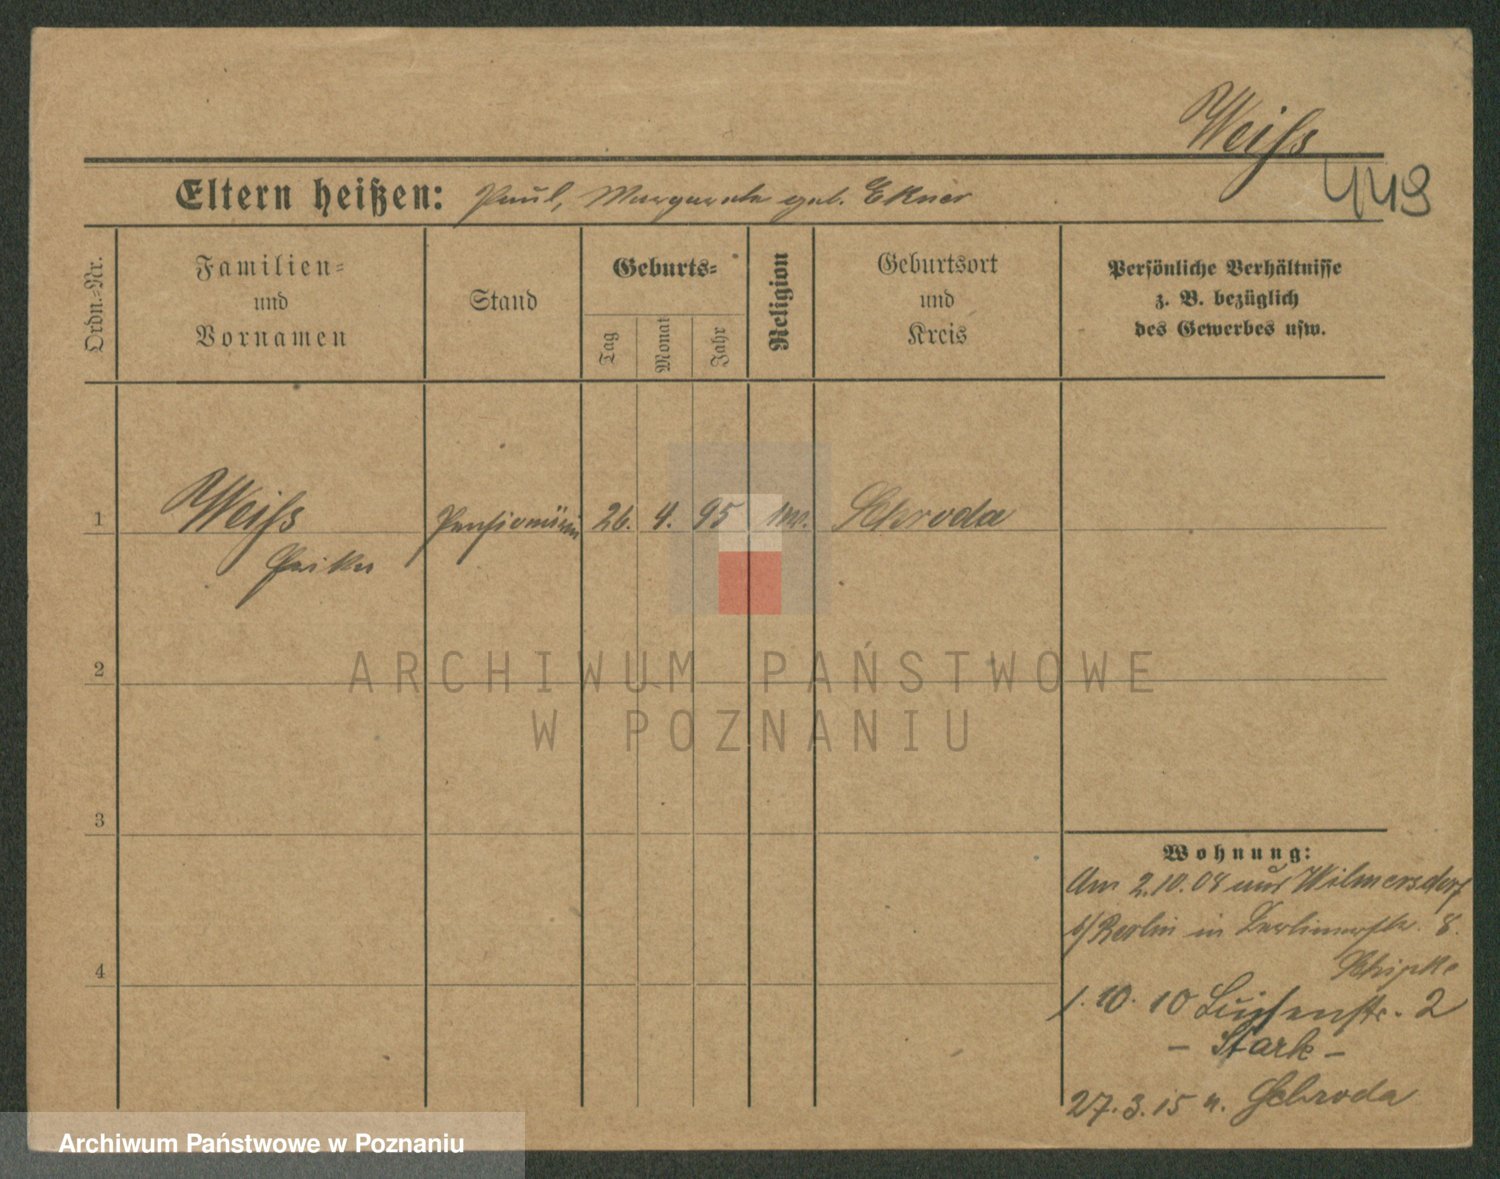 Weiſs
449
Eltern heißen: Paul, Margarete geb. Ekner
Ordn.-Nr.
Familien-
und
Vornamen
Stand
Geburts-
Tag
Monat
Jahr
Religion
Geburtsort
und
Kreis
Persönliche Verhältnisse
z. B. bezüglich
des Gewerbes usw.
1
Weiſs
Pensionärin
26. 4. 95
Schroda
2
3
4
Wohnung:
Am 2.10.08 aus Wilmersdorf
b/Berlin in Berlinerstr. 8.
1. 10. 10 Luisenstr. 2
– Stark –
27. 3. 15 n. Schroda
ARCHIWUM PAŃSTWOWE
W POZNANIU
Archiwum Państwowe w Poznaniu